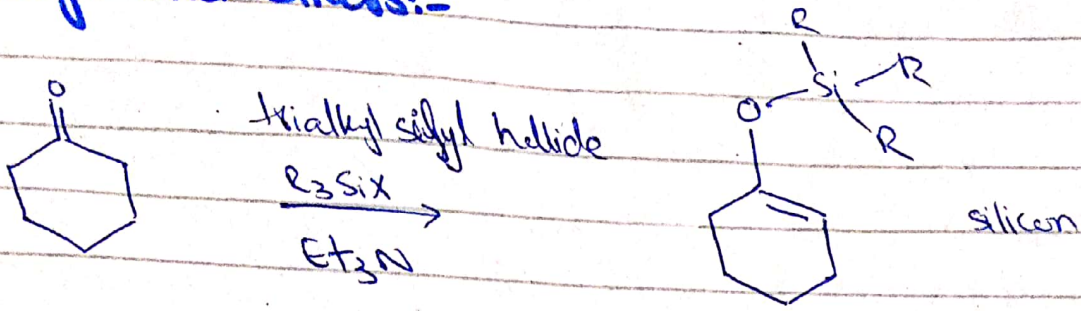 O
trialkyl silyl hallide
R3SiX
Et3N
R
Si R
O
R
silicon